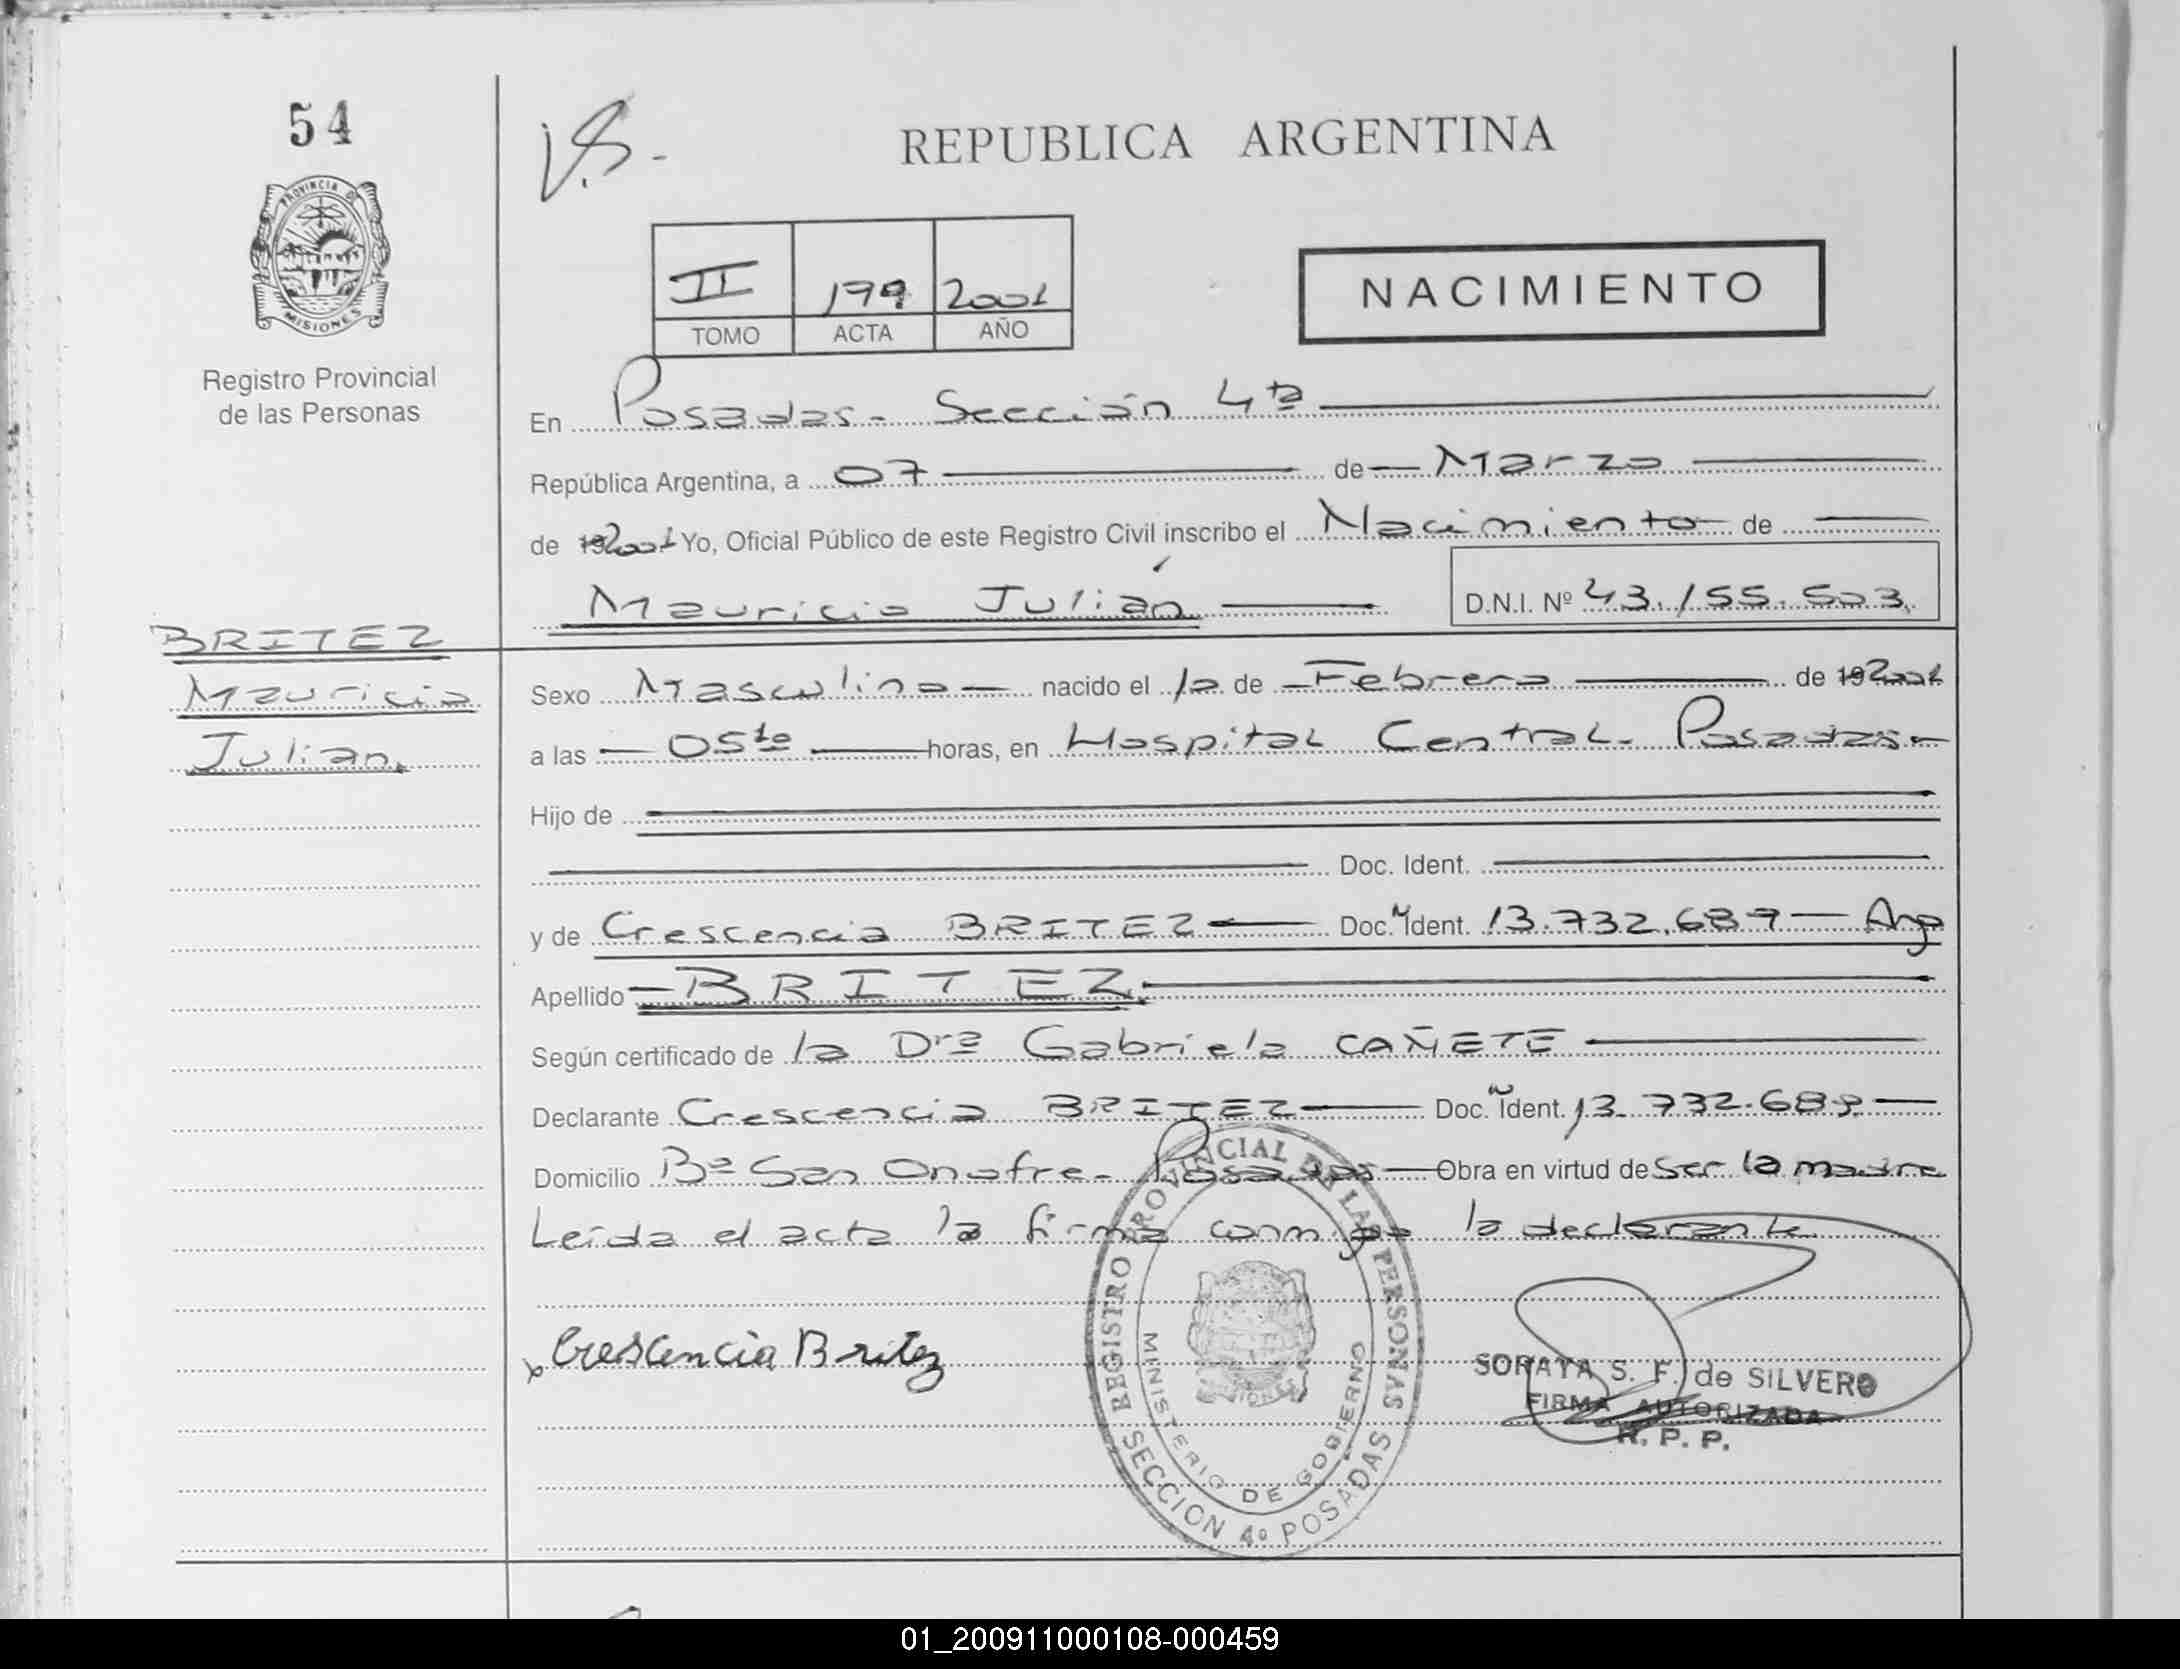 54
V.S.-
REPUBLICA ARGENTINA
PROVINCIA DE
MISIONES
Registro Provincial
de las Personas
II 179 2001
TOMO ACTA AÑO
NACIMIENTO
En Posadas- Sección 4ta
República Argentina, a 07 de Marzo
de 192001 Yo, Oficial Público de este Registro Civil inscribo el Nacimiento de
Mauricio Julián D.N.I. Nº 43.155.503.
BRITEZ
Mauricio
Julian.
Sexo Masculino nacido el 10 de Febrero de 192001
a las 05 horas, en Hospital Central- Posadas-
Hijo de
Doc. Ident.
y de Crescencia BRITEZ Doc. Ident. 13.732.689 Arg
Apellido BRITEZ.
Según certificado de la Drª Gabriela CAÑETE
Declarante Crescencia BRITEZ Doc. Ident. 13.732.689
Domicilio Bº San Onofre- Posadas Obra en virtud de ser la madre
Leída el acta la firma conmigo la declarante
x Crescencia Britez
REGISTRO PROVINCIAL DE LAS PERSONAS
MINISTERIO DE GOBIERNO
MISIONES
SECCION 4º POSADAS
SORAYA S. F. de SILVERO
FIRMA AUTORIZADA
R. P. P.
01_200911000108-000459